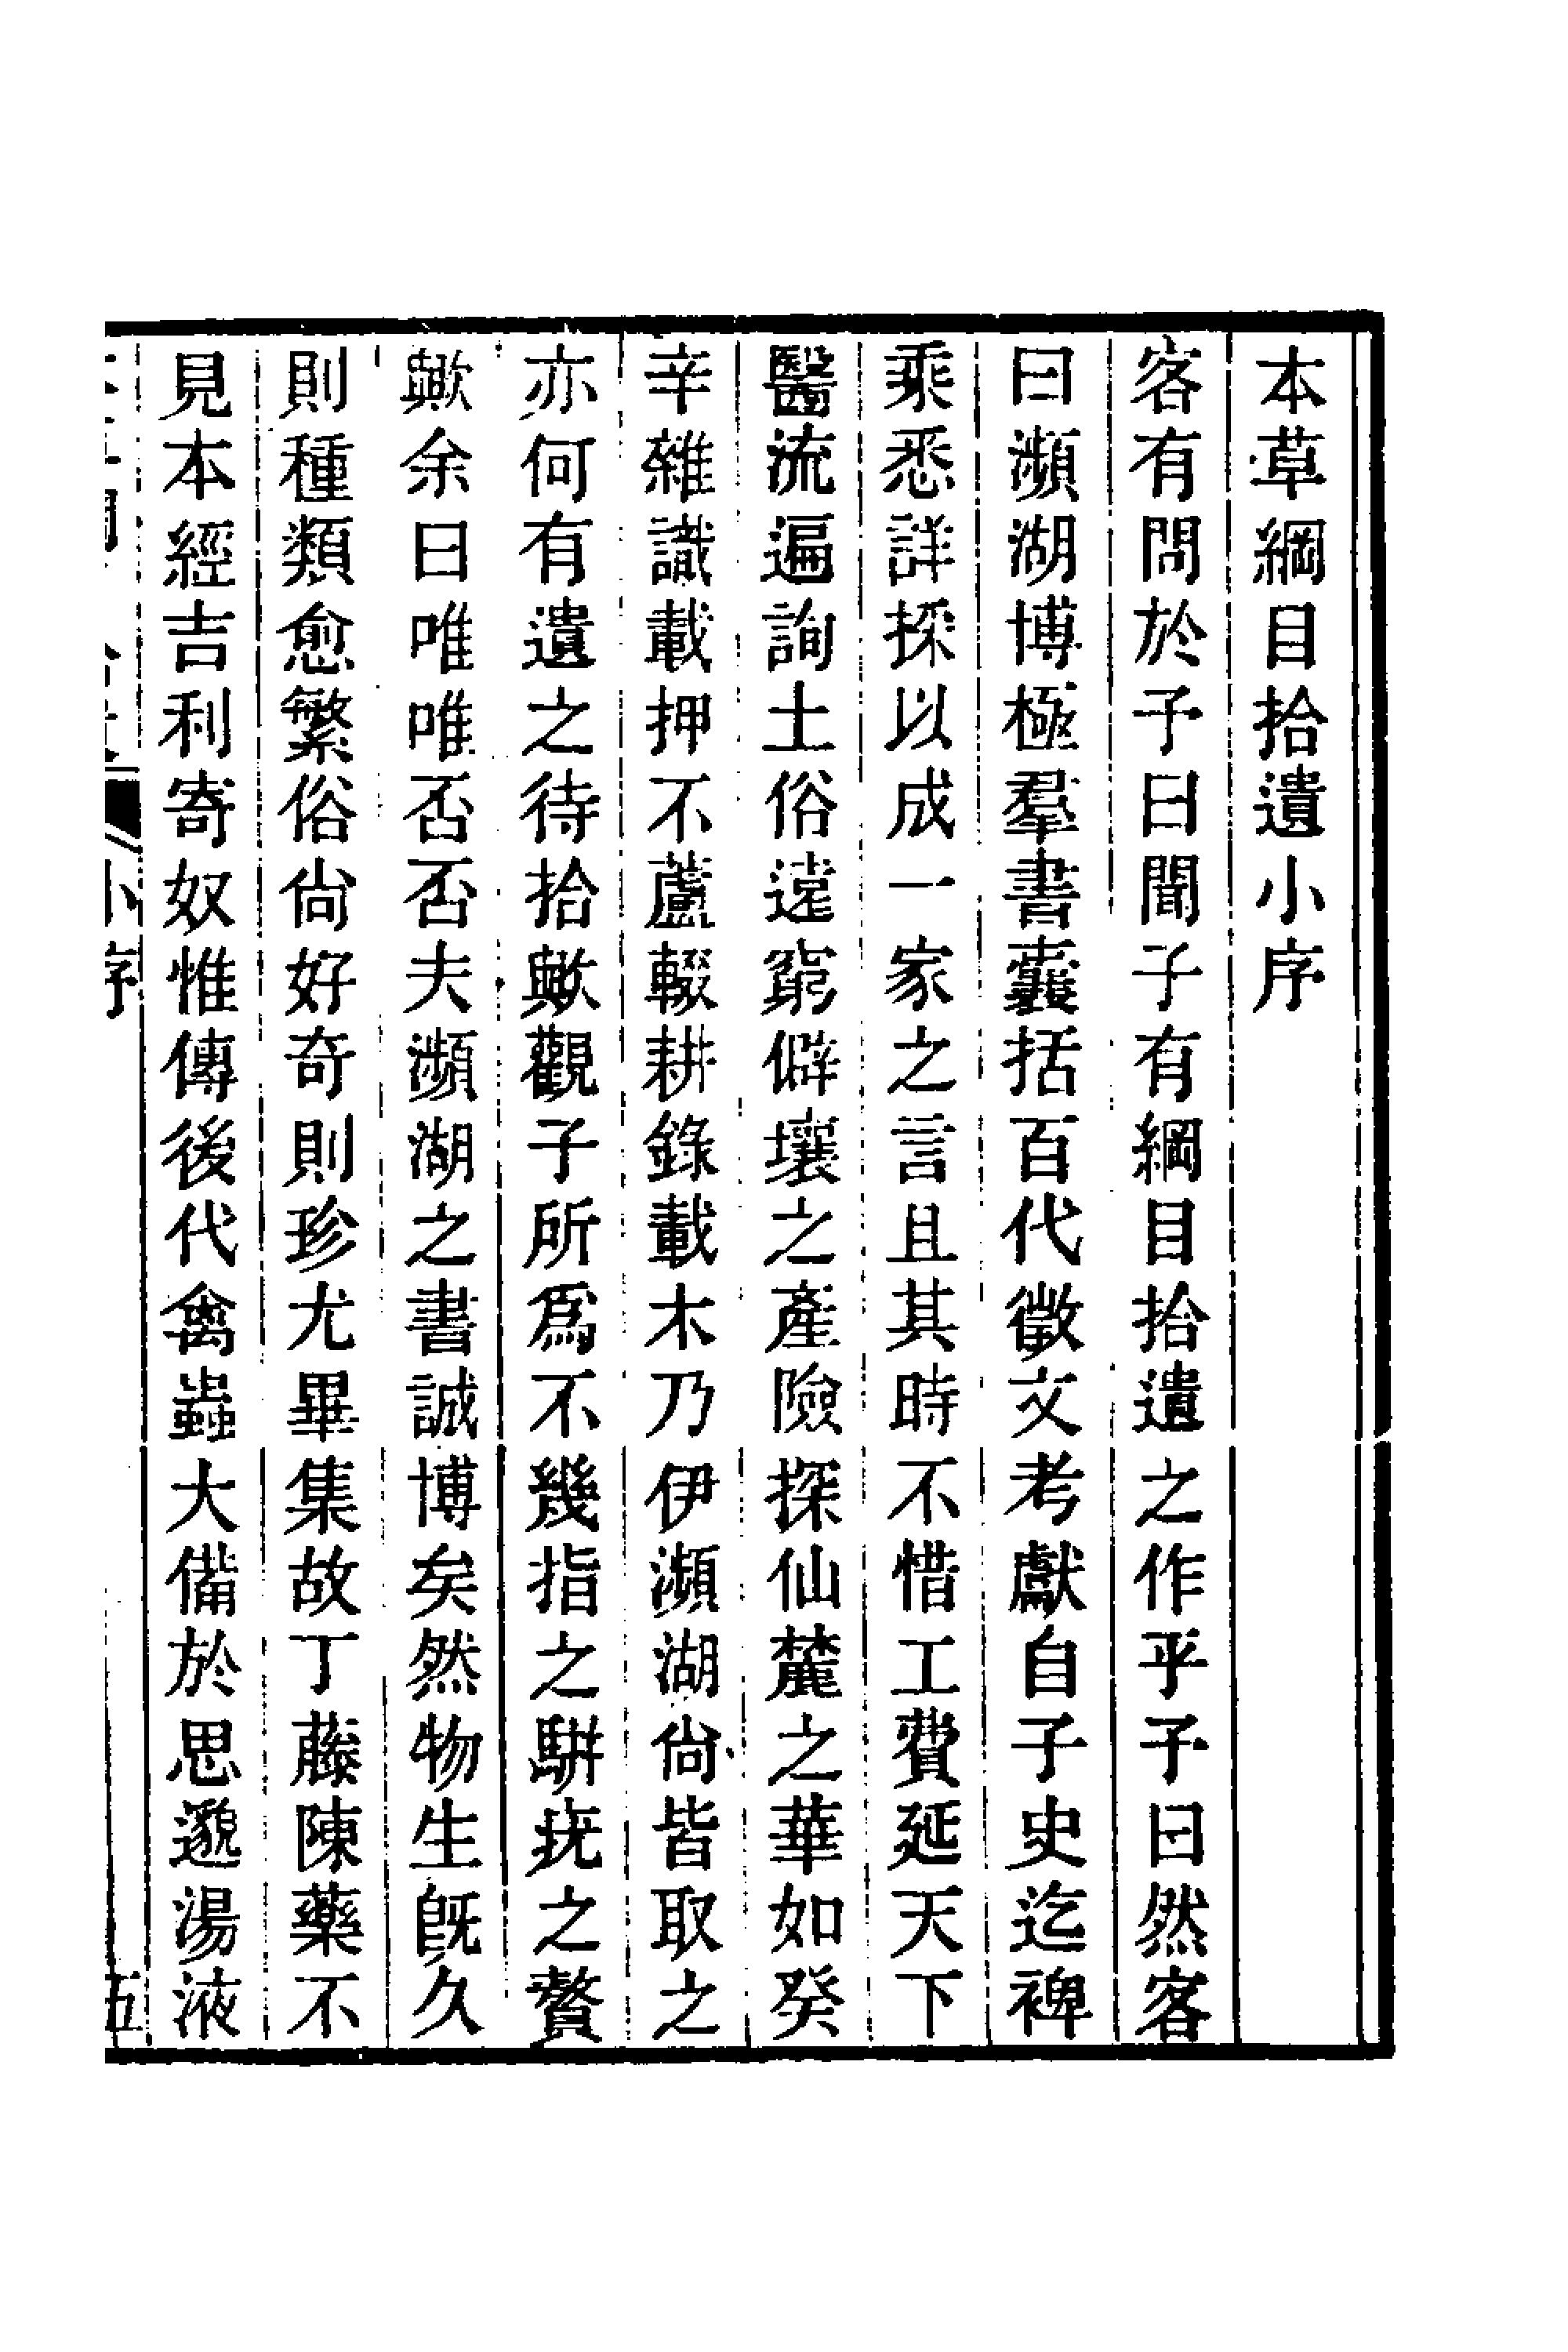 本草綱目拾遺小序
客有問於予曰聞子有綱目拾遺之作乎予曰然客
曰瀕湖博極羣書囊括百代徵文考獻自子史迄稗
乘悉詳採以成一家之言且其時不惜工費延天下
醫流遍詢土俗遠窮僻壤之產險探仙麓之華如癸
辛雜識載押不蘆輟耕錄載木乃伊瀕湖尙皆取之
亦何有遺之待拾歟觀子所爲不幾指之駢疣之贅
歟余曰唯唯否否夫瀕湖之書誠博矣然物生旣久
則種類愈繁俗尙好奇則珍尤畢集故丁藤陳藥不
見本經吉利寄奴惟傳後代禽蟲大備於思邈湯液
小序
五